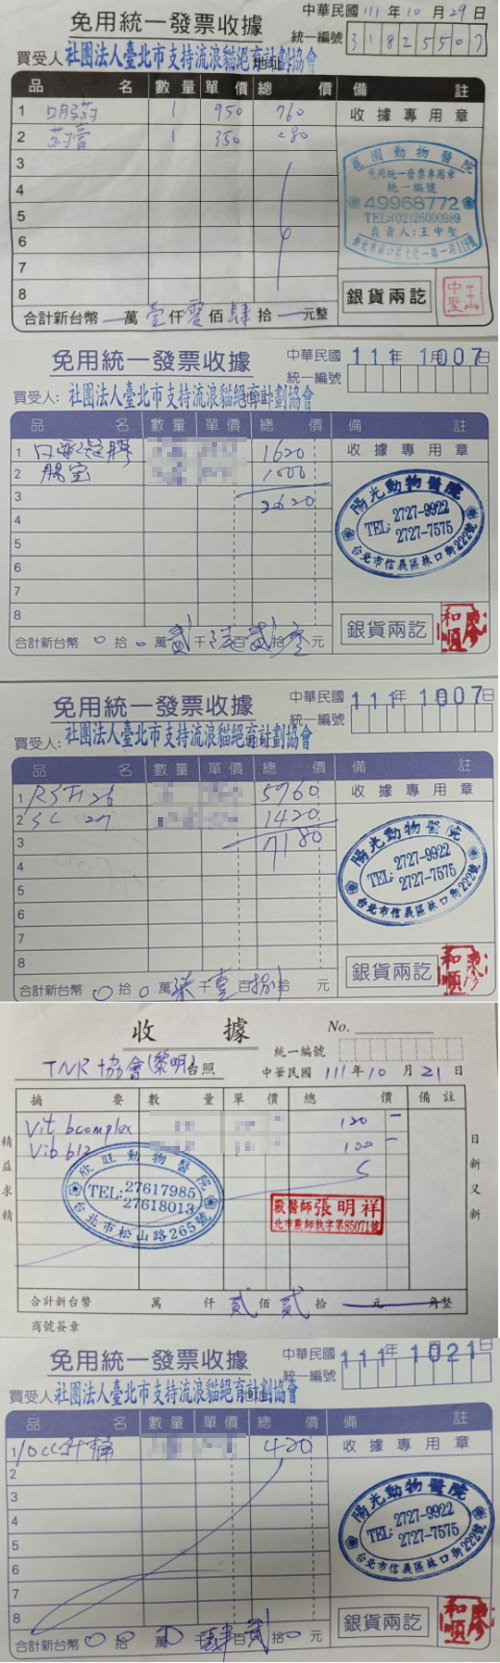 免用統一發票收據
中華民國 111 年 10 月 29 日
統一編號 31825507
買受人 社團法人臺北市支持流浪貓絕育計劃協會
品 名 數量 單價 總 價 備 註
1 1 950 760
2 1 350 280
3
4
5
6
7
8
收據專用章
蕙園動物醫院
免用統一發票專用章
統一編號
49968772
TEL:(02)26000989
負責人:王中聖
新北市林口區文化一路一段119號
銀貨兩訖
王中聖
合計新台幣 萬 壹 仟 零 佰 肆 拾 元整
免用統一發票收據
中華民國 111 年 1007
統一編號
買受人: 社團法人臺北市支持流浪貓絕育計劃協會
品 名 數量 單價 總 價 備 註
1 1620
2 腸宝 1000
3 2620
4
5
6
7
8
收據專用章
陽光動物醫院
TEL: 2727-9922
2727-7575
台北市信義區林口街222號
銀貨兩訖
廖和順
合計新台幣 0 拾 0 萬 貳 千 陸 百 貳 拾 零 元
免用統一發票收據
中華民國 111 年 1007
統一編號
買受人: 社團法人臺北市支持流浪貓絕育計劃協會
品 名 數量 單價 總 價 備 註
1 5760
2 1420
3 7180
4
5
6
7
8
收據專用章
陽光動物醫院
TEL: 2727-9922
2727-7575
台北市信義區林口街222號
銀貨兩訖
廖和順
合計新台幣 0 拾 0 萬 柒 千 壹 百 捌 拾 元
收據
No.
統一編號
TNR協會(黎明) 台照
中華民國 111 年 10 月 21 日
摘 要 數 量 單 價 總 價 備註
Vit bcomplex 120 -
Vib b12 100 -
精益求精
日新又新
欣旺動物醫院
TEL:27617985
27618013
台北市松山路265號
獸醫師張明祥
北市獸師執字第85071號
合計新台幣 萬 仟 貳 佰 貳 拾 元 角整
商號簽章
免用統一發票收據
中華民國 111 年 1021 日
統一編號
買受人 社團法人臺北市支持流浪貓絕育計劃協會
品 名 數量 單價 總 價 備 註
1 10cc針桶 420
2
3
4
5
6
7
8
收據專用章
陽光動物醫院
TEL: 2727-9922
2727-7575
台北市信義區林口街222號
銀貨兩訖
廖和順
合計新台幣 0 拾 0 萬 千 肆 百 貳 拾 0 元